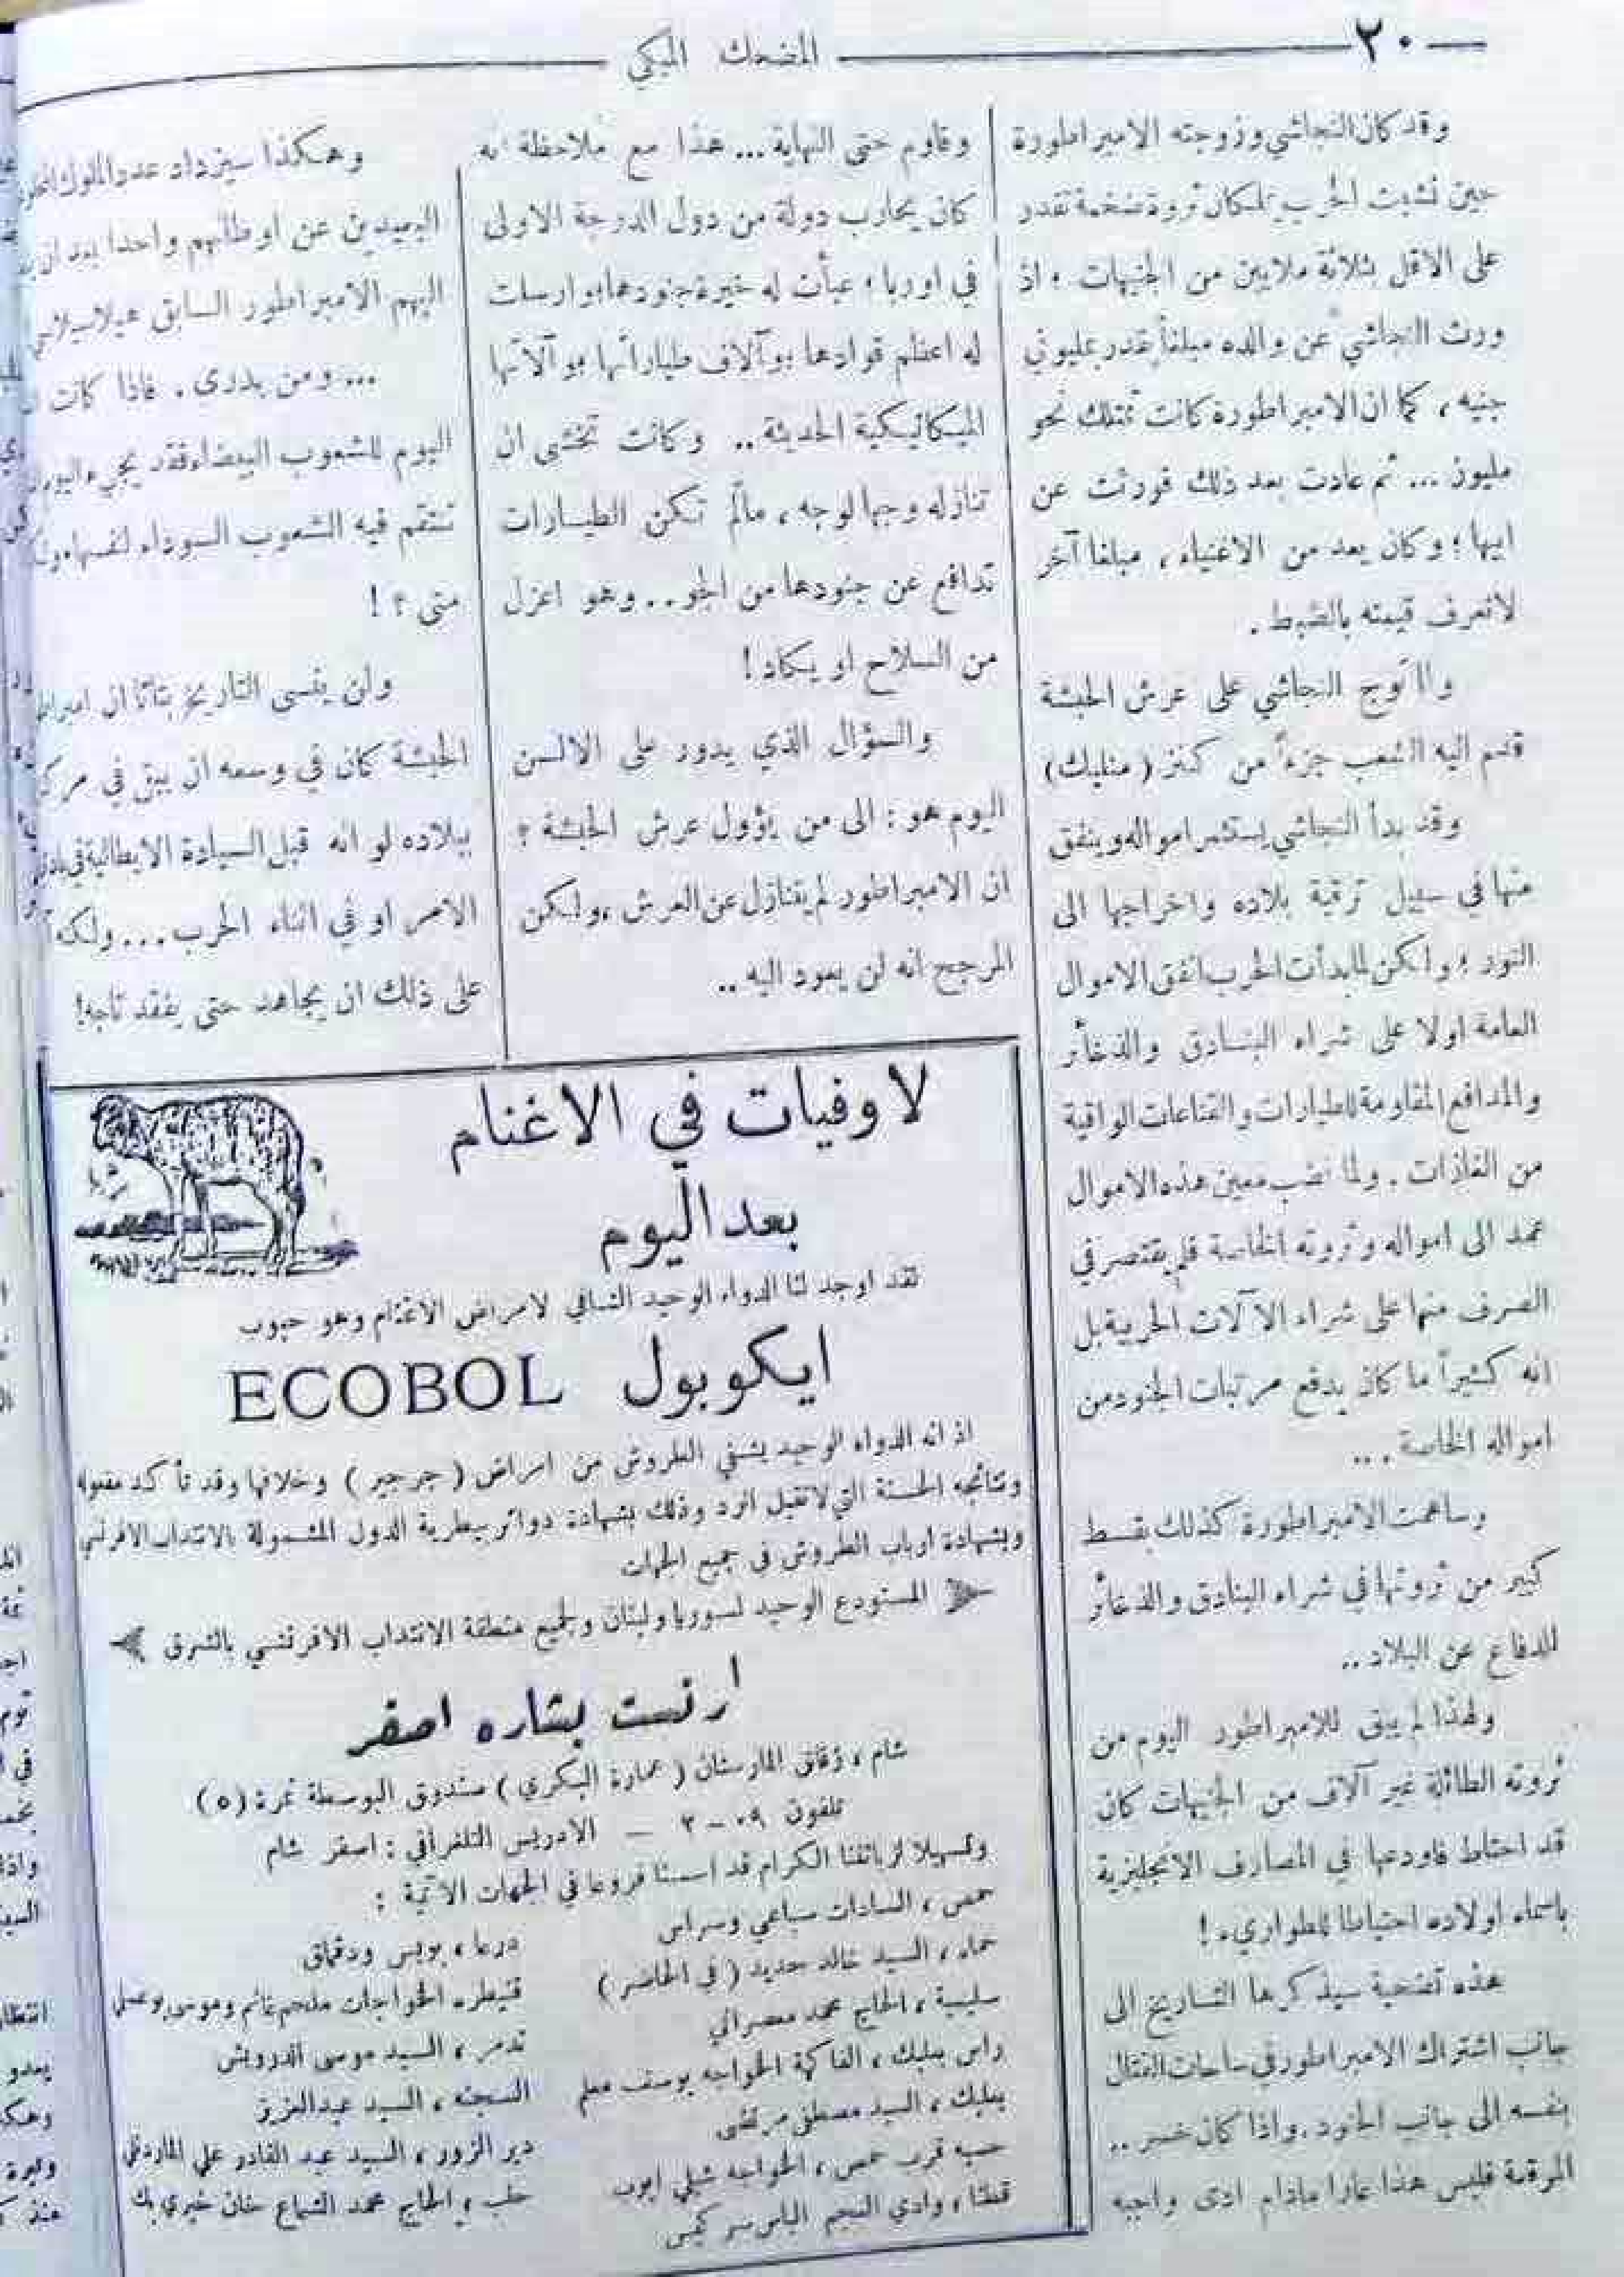 ٢٠
المضحك المبكي
وقد كان النجاشي وزوجته الامبراطورة
حين نشبت الحرب يملكان ثروة ضخمة تقدر
على الاقل بثلاثة ملايين من الجنيهات ؛ اذ
ورث النجاشي عن والده مبلغاً قدر بمليوني
جنيه ، كما ان الامبراطورة كانت تمتلك نحو
مليون ... ثم عادت بعد ذلك فورثت عن
ابيها ؛ وكان يعد من الاغنياء ، مبلغا آخر
لا تعرف قيمته بالضبط .
ولما توج النجاشي على عرش الحبشة
قدم اليه الشعب جزءاً من كنز ( منليك )
وقد بدأ النجاشي يستثمر امواله وينفق
منها في سبيل ترقية بلاده واخراجها الى
النور ؛ ولكن لما بدأت الحرب انفق الاموال
العامة اولا على شراء البنادق والذخائر
والمدافع المقاومة للطيارات والقناعات الواقية
من الغازات . ولما نضب معين هذه الاموال
عمد الى امواله وثروته الخاصة فلم يقتصر في
الصرف منها على شراء الآلات الحربية بل
انه كثيراً ما كان يدفع مرتبات الجنود من
امواله الخاصة ...
وساهمت الامبراطورة كذلك بقسط
كبير من ثروتها في شراء البنادق والذخائر
للدفاع عن البلاد ..
ولهذا لم يبق للامبراطور اليوم من
ثروته الطائلة غير آلاف من الجنيهات كان
قد احتاط فاودعها في المصارف الانجليزية
باسماء اولاده احتياطا للطواريء !
هذه تضحية سيذكرها التاريخ الى
جانب اشتراك الامبراطور في ساحات القتال
بنفسه الى جانب الجنود . واذا كان خسر ..
الموقعة فليس هذا عارا مادام ادى واجبه
وقاوم حتى النهاية ... هذا مع ملاحظة انه
كان يحارب دولة من دول الدرجة الاولى
في اوربا ، عبأت له خيرة جنودها وارسلت
له اعظم قوادها وآلاف طياراتها وآلاتها
الميكانيكية الحديثة .. وكانت تخشى ان
تنازله وجها لوجه ، مالم تكن الطيارات
تدافع عن جنودها من الجو .. وهو اعزل
من السلاح او يكاد !
والسؤال الذي يدور على الالسن
اليوم هو : الى من يؤول عرش الحبشة ؟
ان الامبراطور لم يتنازل عن العرش ، ولكن
المرجح انه لن يعود اليه ..
وهكذا سيزداد عدد الملوك
البعيدين عن اوطانهم واحدا بعد ان
اليهم الامبراطور السابق هيلاسيلاسي
... ومن يدري . فاذا كانت
اليوم للشعوب البيضاء فقد يجيء اليوم
تنتقم فيه الشعوب السوداء لنفسها
متى ؟ !
ولن ينسى التاريخ بتاتا ان
الحبشة كان في وسعه ان يبقى في
ببلاده لو انه قبل السيادة الايطالية في
الامر او في اثناء الحرب ... ولكنه
على ذلك ان يجاهد حتى يفقد تاجه !
لا وفيات في الاغنام
بعد اليوم
لقد اوجد لنا الدواء الوحيد الشافي لامراض الاغنام وهو حبوب
ايكوبول ECOBOL
اذ انه الدواء الوحيد يشفي الطروش من امراض ( جرجير ) وخلافها وقد تأكد مفعوله
ونتائجه الحسنة التي لا تقبل الرد وذلك بشهادة دوائر بيطرية الدول المشمولة بالانتداب الافرنسي
وبشهادة ارباب الطروش في جميع الجهات
المستودع الوحيد لسوريا ولبنان ولجميع منطقة الانتداب الافرنسي بالشرق
ارنست بشاره اصفر
شام ، زقاق المارستان ( عمارة البكري ) صندوق البوسطة نمرة (٥)
تلفون — الادريس التلغرافي : اصفر شام
وتسهيلا لزبائننا الكرام قد اسسنا فروعا في الجهات الاتية :
حمص ، السادات سباعي وسراس
حماه ، السيد خالد حديد ( في الحاضر )
سليمية ، الحاج محمد معصراني
راس بعلبك ، الفاكهة الخواجه يوسف معلم
بعلبك ، السيد مصطفى مرتضى
حسيه قرب حمص ، الخواجه شبلي ايوب
قطنا ، وادي العجم الياس
درعا ، بويس ودقماق
قنيطره الخواجات ملحم غانم وموسى
تدمر ، السيد موسى الدرويش
السخنه ، السيد عبد العزيز
دير الزور ، السيد عبد القادر علي
حلب ، الحاج محمد الشماع خان خيري بك